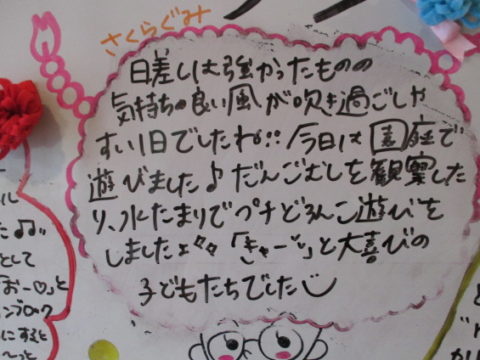 さくらぐみ
日差しは強かったものの
気持ちの良い風が吹き過ごしや
すい1日でしたね!!今日は園庭で
遊びました♪だんごむしを観察した
り、水たまりでプチどろんこ遊びを
しました。「きゃー」と大喜びの
子どもたちでした
ル
た♫
として
「おー♡」と
ンブロック
にすると